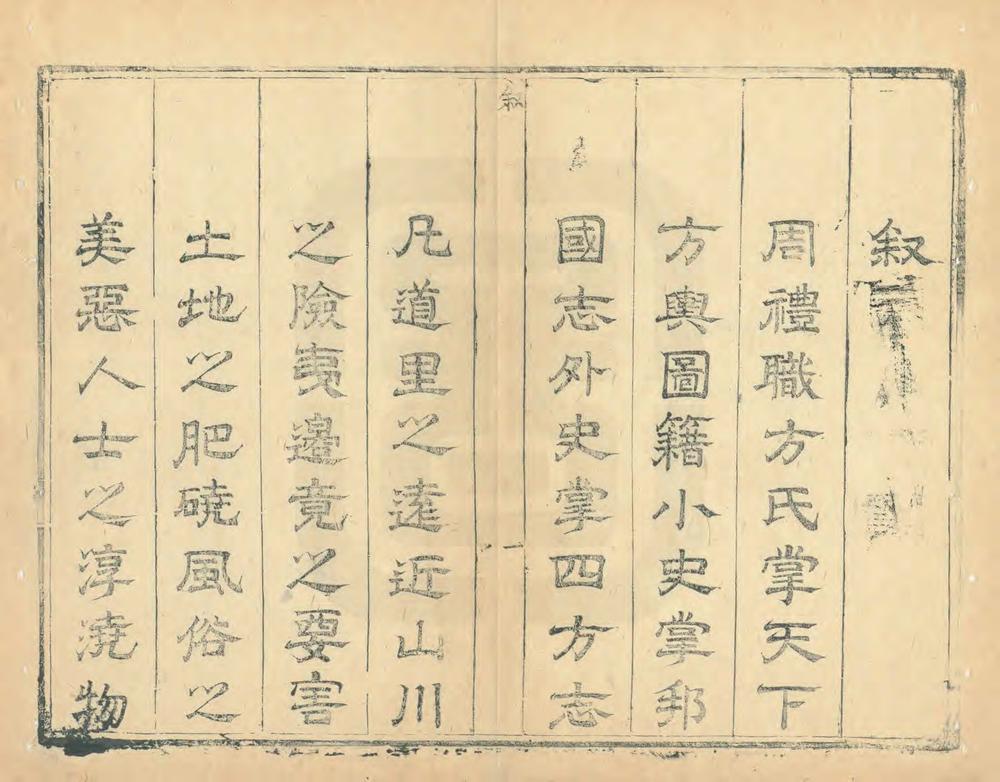 叙
周禮職方氏掌天下
方輿圖籍小史掌邦
國志外史掌四方志
叙
一
凡道里之遠近山川
之險夷邊竟之要害
土地之肥磽風俗之
美惡人士之淳澆物